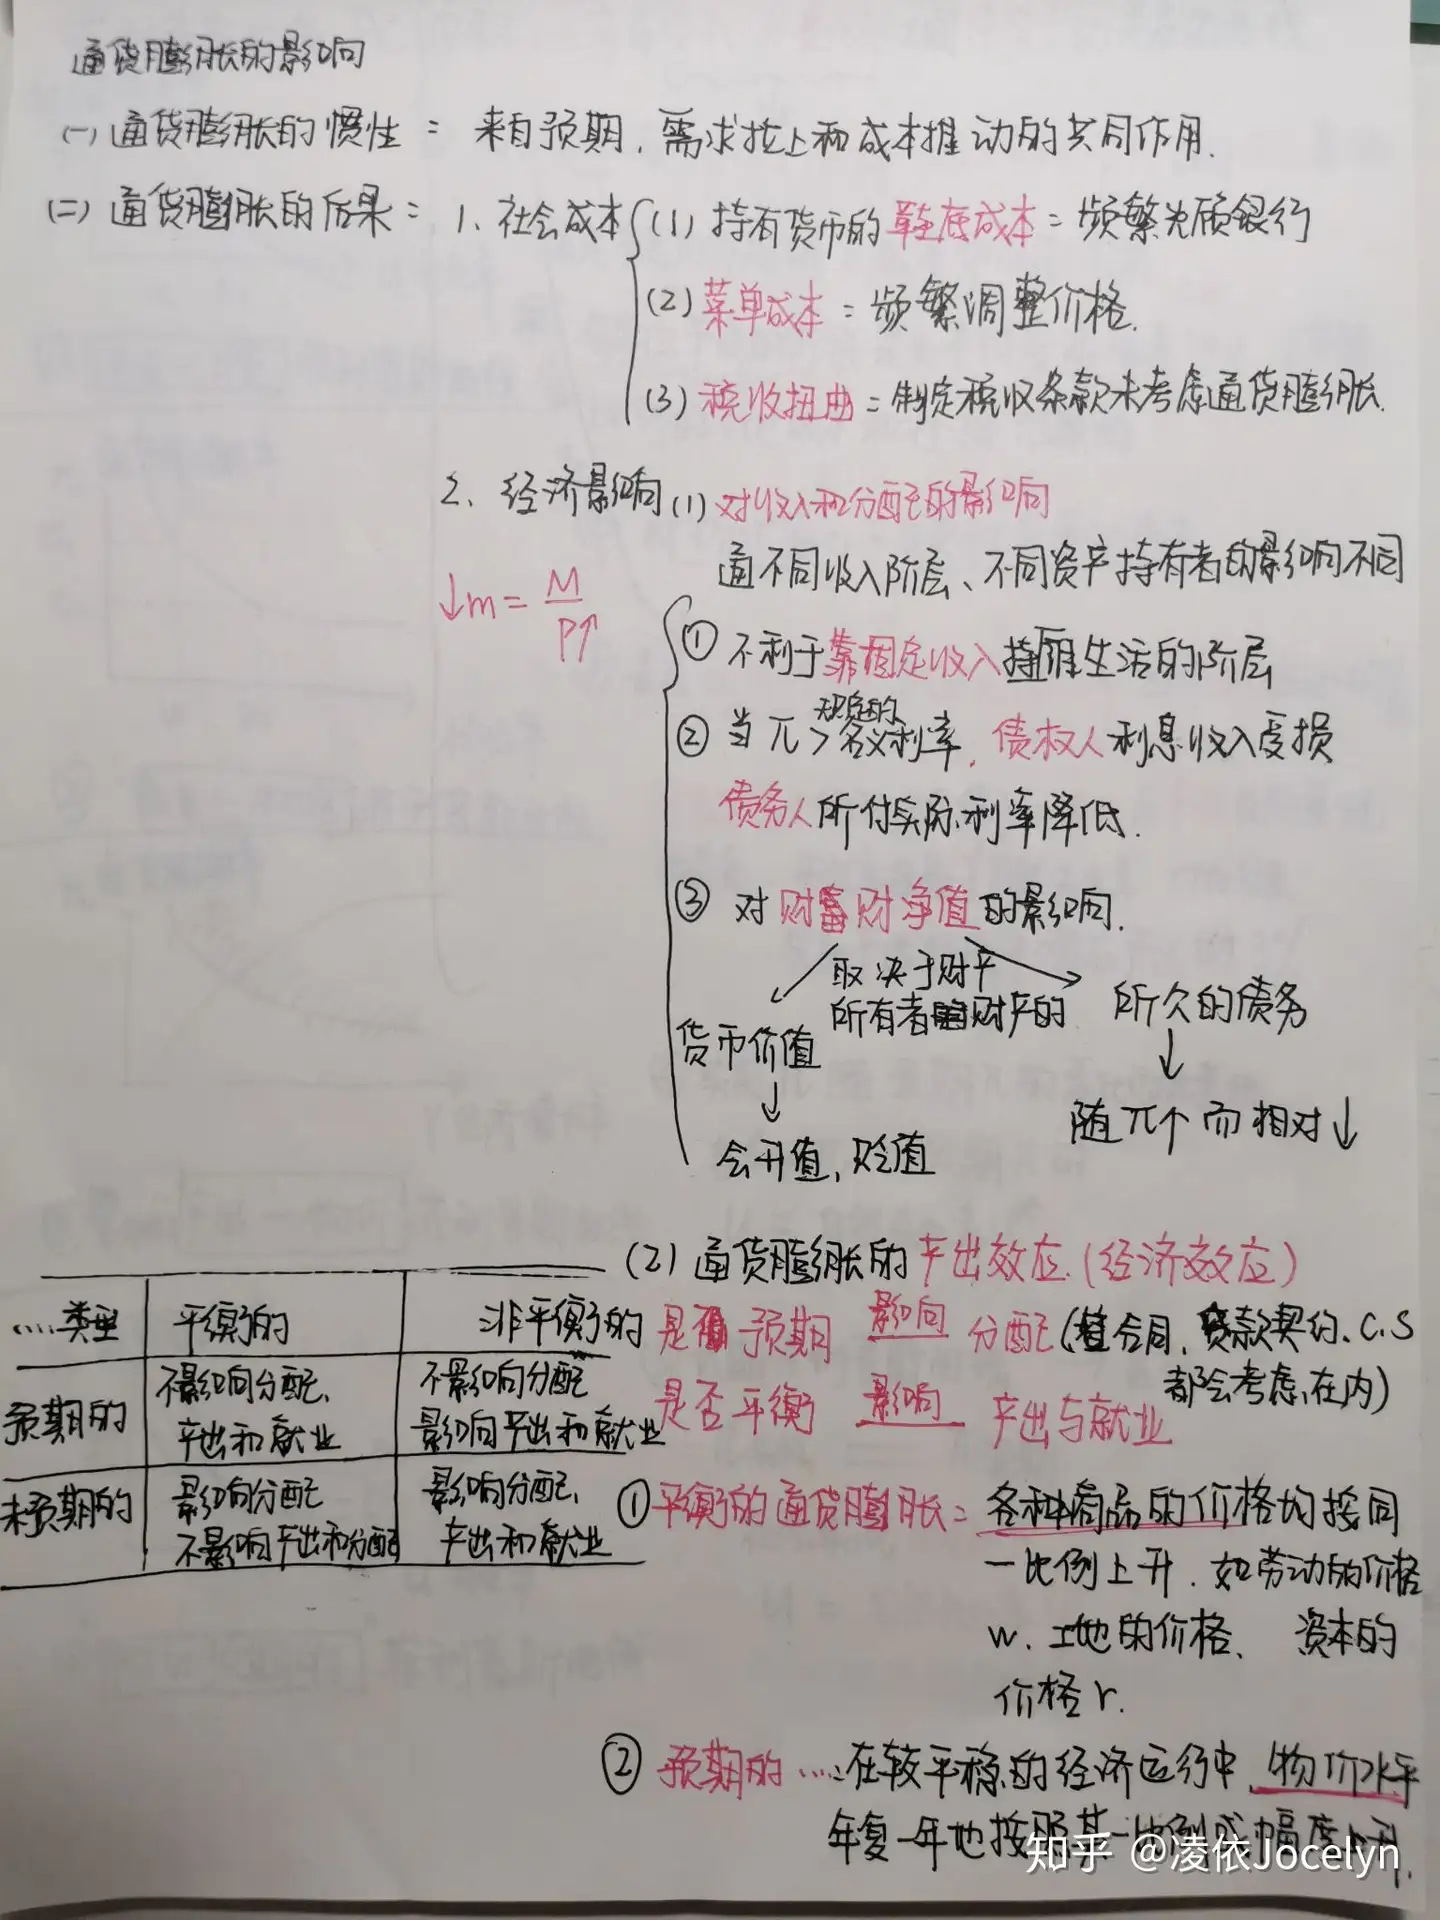 通货膨胀的影响
(一) 通货膨胀的惯性: 来自预期、需求拉上和成本推动的共同作用.
(二) 通货膨胀的后果: 1、社会成本 (1) 持有货币的鞋底成本: 频繁光顾银行
(2) 菜单成本: 频繁调整价格.
(3) 税收扭曲: 制定税收条款未考虑通货膨胀.
2、经济影响 (1) 对收入和分配的影响
通不同收入阶层、不同资产持有者的影响不同
↓m = M/P↑
① 不利于靠固定收入持维生活的阶层
② 当π>规定的名义利率, 债权人利息收入受损
债务人所付实际利率降低.
③ 对财富财净值的影响.
取决于财产
所有者财产的
货币价值
↓
会升值, 贬值
所欠的债务
↓
随π↑而相对↓
(2) 通货膨胀的产出效应.(经济效应)
是否预期 影响 分配(合同、贷款契约、C.S
都会考虑在内)
是否平衡 影响 产出与就业
....类型 平衡的 非平衡的
预期的 不影响分配、 不影响分配
产出和就业 影响产出和就业
未预期的 影响分配 影响分配、
不影响产出和分配 产出和就业
① 平衡的通货膨胀: 各种商品的价格均按同
一比例上升. 如劳动的价格
w、土地的价格、资本的
价格r.
② 预期的....: 在较平稳的经济运行中, 物价水平
年复一年地按照某一比例或幅度上升.
知乎 @凌依Jocelyn